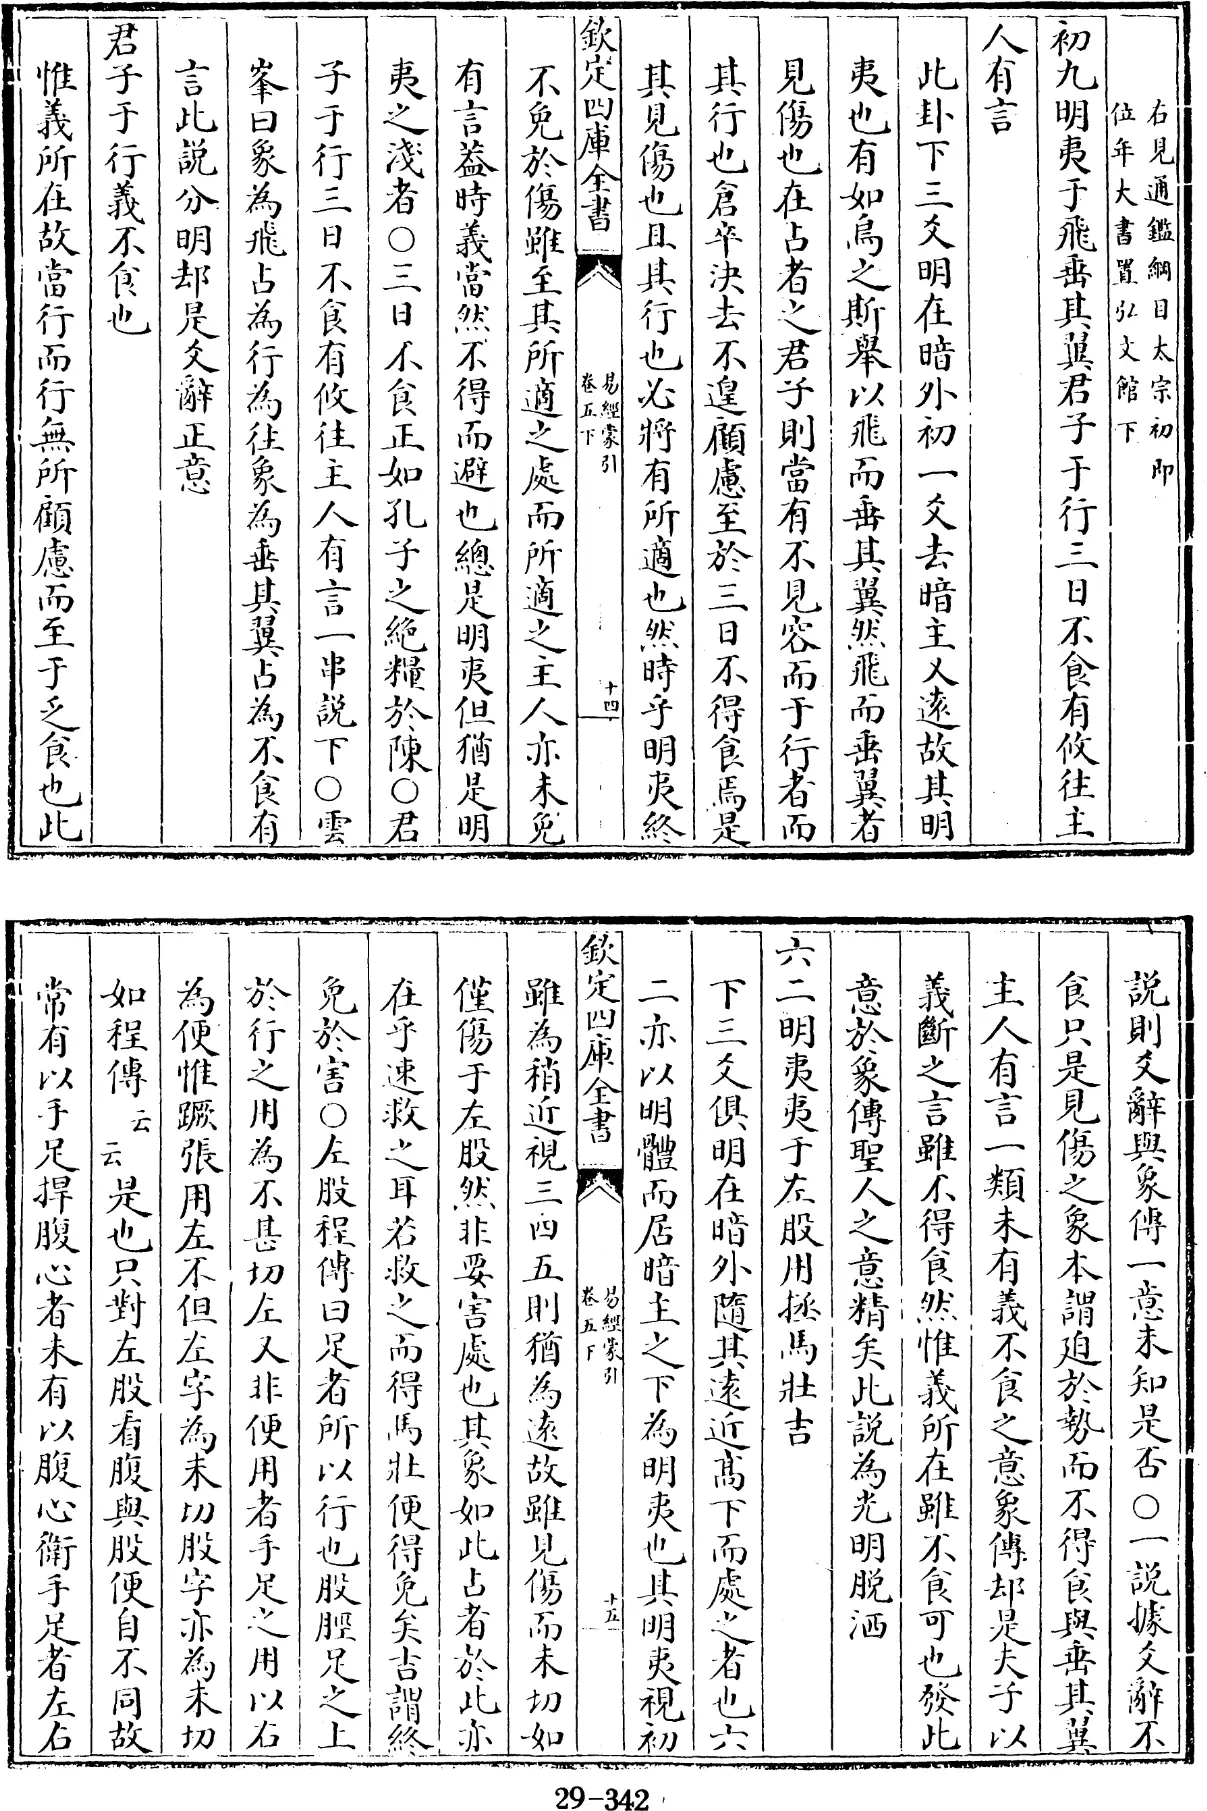 右見通鑑綱目太宗初即
位年大書置弘文館下
初九明夷于飛垂其翼君子于行三日不食有攸往主
人有言
此卦下三爻明在暗外初一爻去暗主又遠故其明
夷也有如鳥之斯舉以飛而垂其翼然飛而垂翼者
見傷也在占者之君子則當有不見容而于行者而
其行也倉卒決去不遑顧慮至於三日不得食焉是
其見傷也且其行也必將有所適也然時乎明夷終
欽定四庫全書
易經蒙引
卷五下
十四
不免於傷雖至其所適之處而所適之主人亦未免
有言葢時義當然不得而避也總是明夷但猶是明
夷之淺者○三日不食正如孔子之絶糧於陳○君
子于行三日不食有攸往主人有言一串說下○雲
峯曰象為飛占為行為往象為垂其翼占為不食有
言此說分明却是爻辭正意
君子于行義不食也
惟義所在故當行而行無所顧慮而至于乏食也此
說則爻辭與象傳一意未知是否○一說據爻辭不
食只是見傷之象本謂迫於勢而不得食與垂其翼
主人有言一類未有義不食之意象傳却是夫子以
義斷之言雖不得食然惟義所在雖不食可也發此
意於象傳聖人之意精矣此說為光明脫洒
六二明夷夷于左股用拯馬壯吉
下三爻俱明在暗外隨其遠近髙下而處之者也六
二亦以明體而居暗主之下為明夷也其明夷視初
欽定四庫全書
易經蒙引
卷五下
十五
雖為稍近視三四五則猶為遠故雖見傷而未切如
僅傷于左股然非要害處也其象如此占者於此亦
在乎速救之耳若救之而得馬壯便得免矣吉謂終
免於害○左股程傳曰足者所以行也股脛足之上
於行之用為不甚切左又非便用者手足之用以右
為便惟蹶張用左不但左字為未切股字亦為未切
如程傳云云是也只對左股看腹與股便自不同故
常有以手足捍腹心者未有以腹心衛手足者左右
29-342